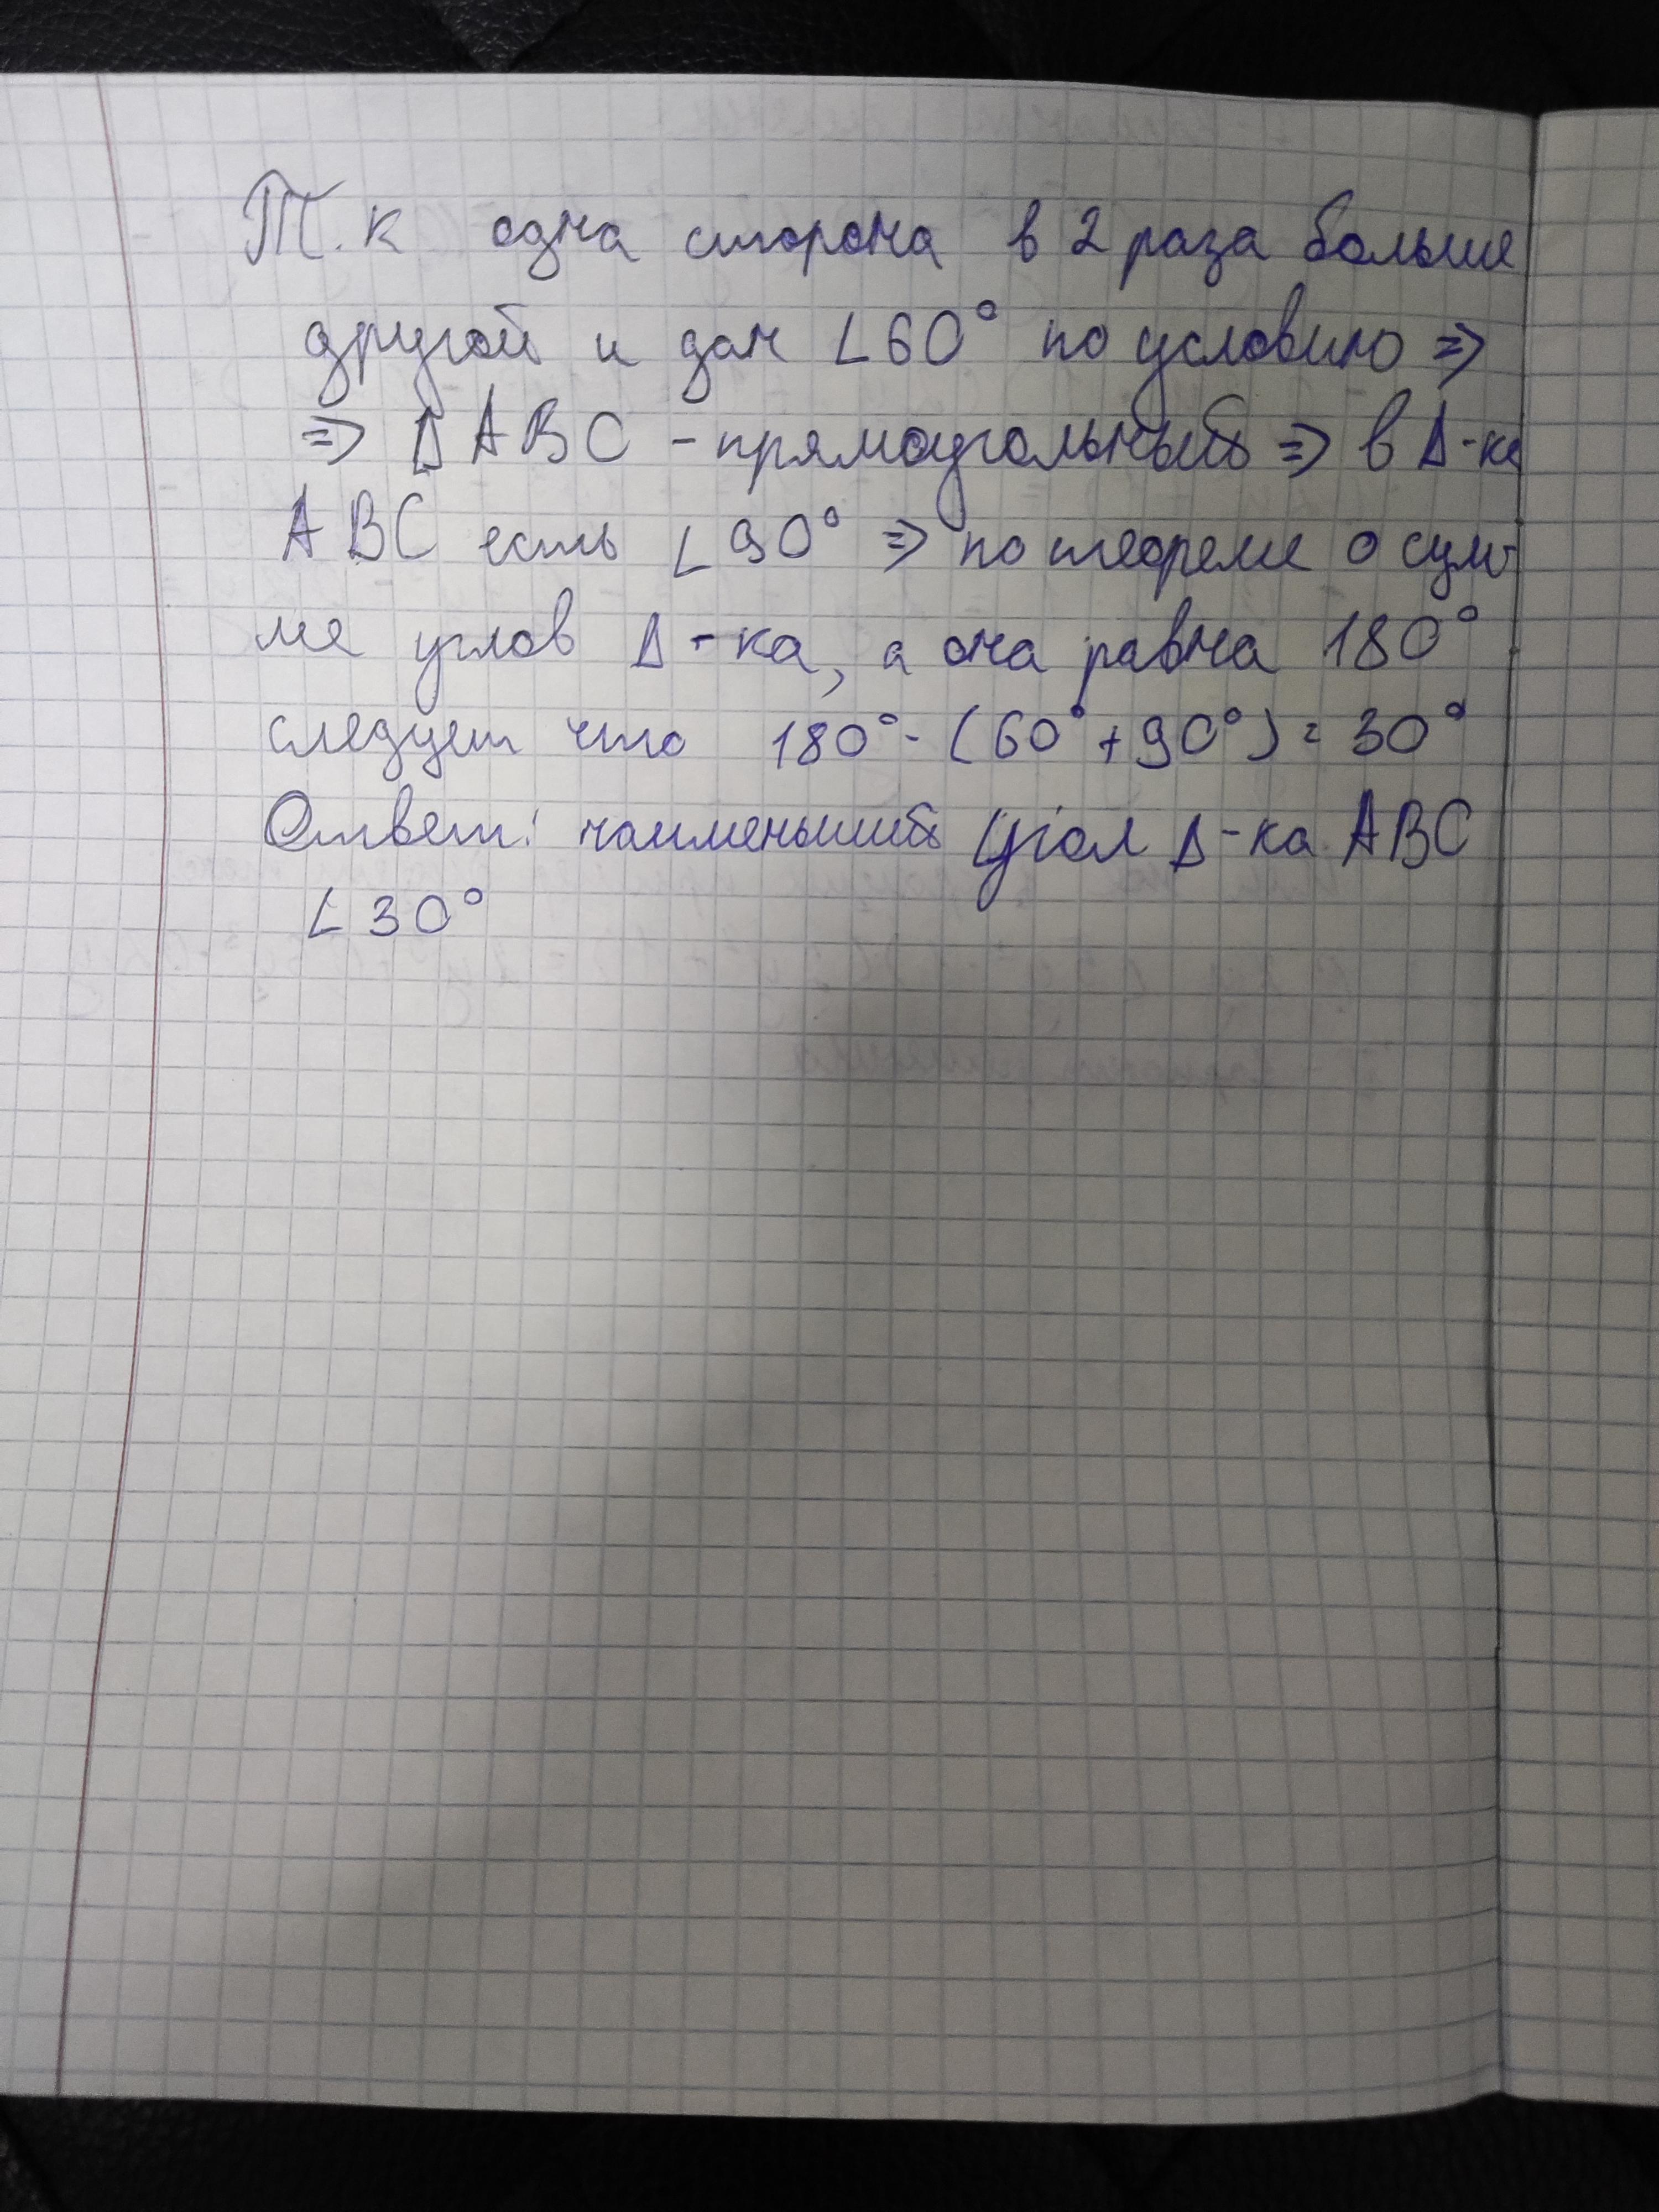 Т. к одна сторона в 2 раза больше
другой и дан ∠60° по условию =>
=> Δ ABC - прямоугольный => в Δ-ке
ABC есть ∠90° => по теореме о сум-
ме углов Δ-ка, а она равна 180°
следует что 180°-(60°+90°)=30°
Ответ: наименьший угол Δ-ка ABC
∠30°